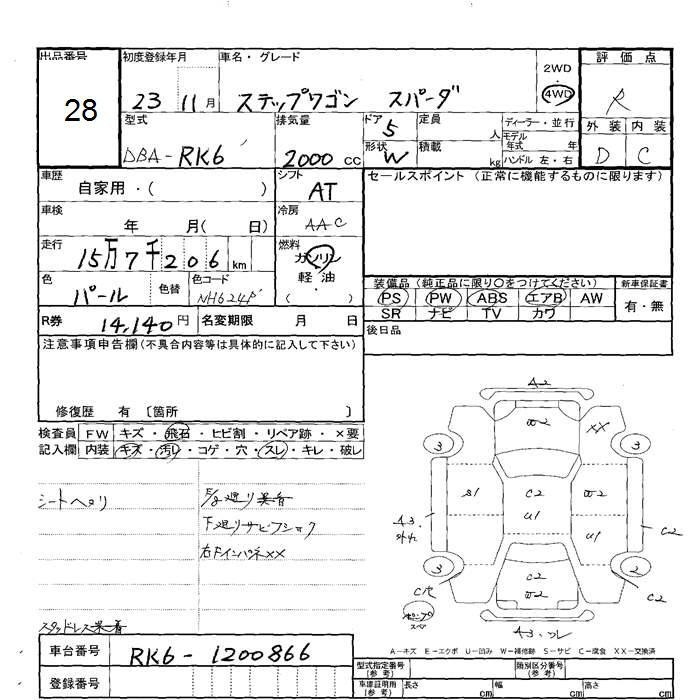 出品番号
28
初度登録年月
23 11月
車名・グレード
ステップワゴン スパーダ
2WD
・
4WD
評価点
R
外装 内装
D C
型式
DBA-RK6
排気量
2000 CC
ドア
5
定員
人
ディーラー・並行
形状
W
積載
kg
モデル
年式 年
ハンドル 左・右
車歴
自家用・( )
シフト
AT
セールスポイント(正常に機能するものに限ります)
車検
年 月( 日)
冷房
AAC
走行
15万7千206 km
燃料
ガソリン
軽・油
( )
色
パール
色替
色コード
NH624P
装備品(純正品に限り○をつけてください)
PS PW ABS エアB AW
SR ナビ TV カワ
新車保証書
有・無
R券 14,140円
名変期限 月 日
後日品
注意事項申告欄(不具合内容等は具体的に記入して下さい)
修復歴 有 〔箇所 〕
検査員
記入欄
FW キズ・飛石・ヒビ割・リペア跡・×要
内装 キズ・汚レ・コゲ・穴・スレ・キレ・破レ
シートヘタリ
下廻りサビフショク
右Fインパネ××
A2
W2
XX
3
3
S1
C2
W2
U1
U1
A3
C2
3
2
C穴
C2
W2
C2
A3・スレ
A-キズ E-エクボ U-凹み W-補修跡 S-サビ C-腐食 XX-交換済
車台番号
RK6-1200866
登録番号
型式指定番号
(参考)
類別区分番号
(参考)
車庫証明用
(参考)
長さ cm
幅 cm
高さ cm